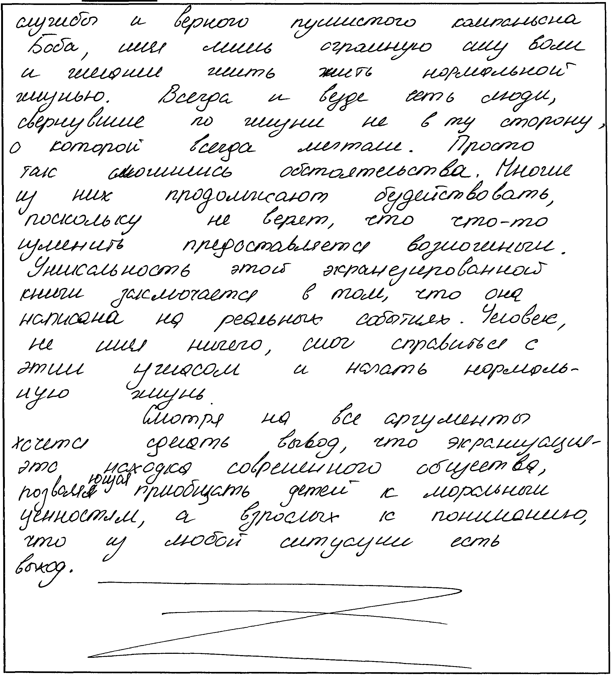 службы и верного пушистого компаньона
Боба, имея лишь огромную силу воли
и желание жить жить нормальной
жизнью. Всегда и везде есть люди,
свернувшие по жизни не в ту сторону,
о которой всегда мечтали. Просто
так сложились обстоятельства. Многие
из них продолжают будействовать,
поскольку не верят, что что-то
изменить предоставляется возможным.
Уникальность этой экранизированной
книги заключается в том, что она
написана на реальных событиях. Человек,
не имея ничего, смог справиться с
этим ужасом и начать нормаль-
ную жизнь.
Смотря на все аргументы
хочется сделать вывод, что экранизация-
это находка современного общества,
позволяющая приобщать детей к моральным
ценностям, а взрослых к пониманию,
что из любой ситуации есть
выход.